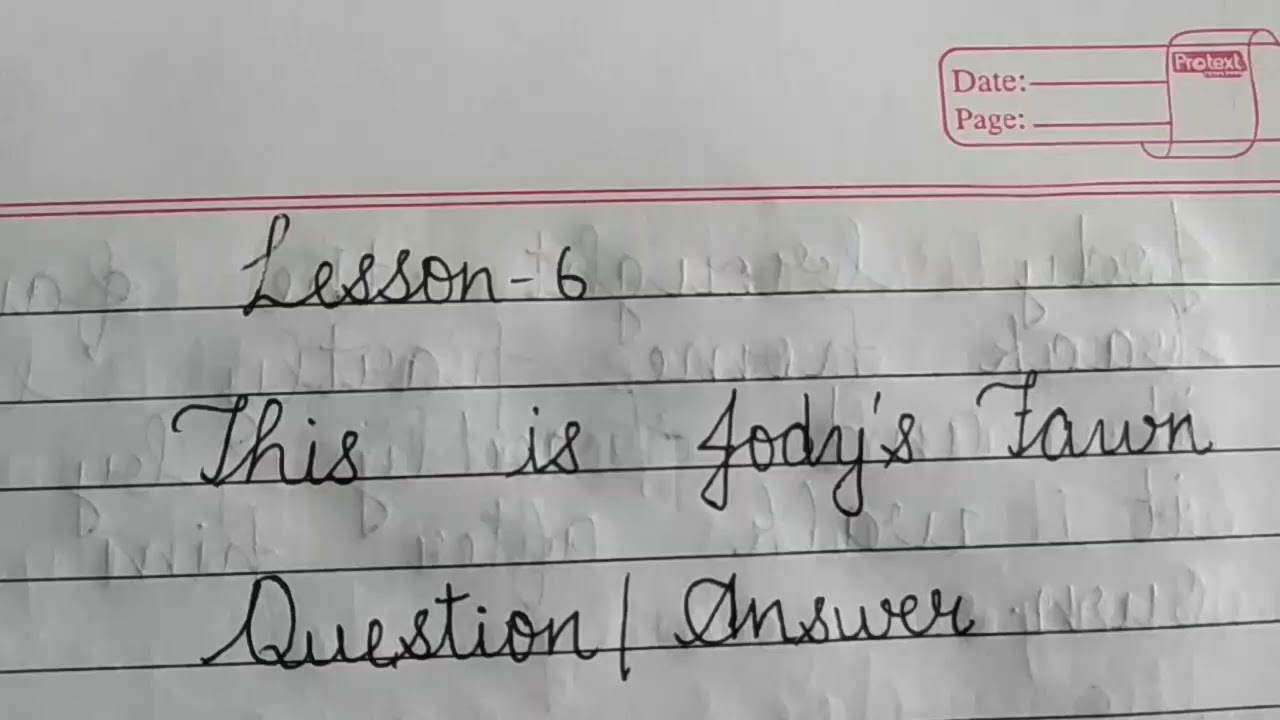 Protext
Date:
Page:
Lesson-6
This is Jody's Fawn
Question/Answer